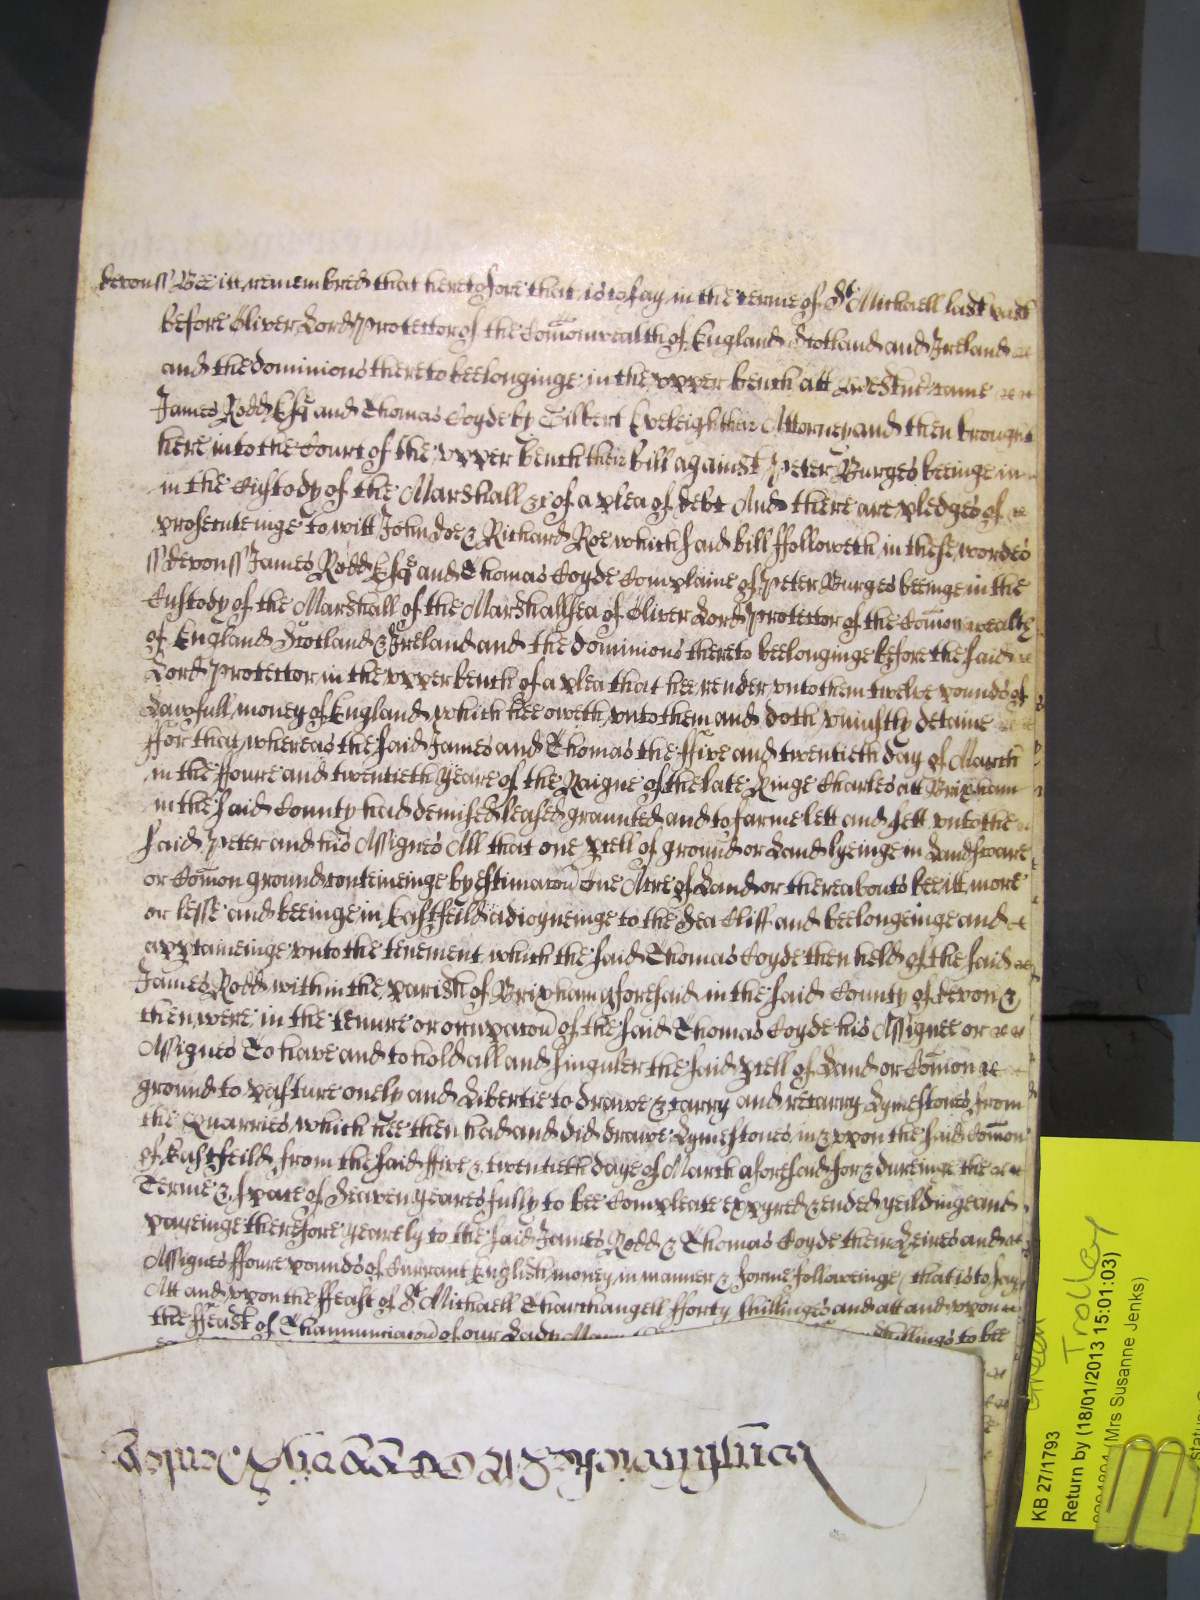 devon ss Bee itt remembred that heretofore that is to say in the terme of St Michaell last past
before Oliver Lord Protector of the Comonwealth of England Scotland and Ireland
and the dominions thereto beelonginge in the vpper bench att Westmr came
James Rodd Esqr and Thomas Coyde by Gilbert Eveleigh their Attorney and then brought
here into the Court of the vpper bench their bill against Peter Burges beeinge in
in the Custody of the Marshall &c of a plea of debt And there are pledges of
prosecuteinge to witt John doe & Richard Roe which said bill ffolloweth in these wordes
ss devon ss James Rodd Esqr and Thomas Coyde Complaine of Peter Burges beeinge in the
Custody of the Marshall of the Marshallsea of Oliver Lord Protector of the Comonwealth
of England Scotland & Ireland and the dominions thereto beelonginge before the said
Lord Protector in the vpper bench of a plea that hee render vnto them twelve pounds of
Lawfull money of England which hee oweth vnto them and doth vniustly detaine
ffor that whereas the said James and Thomas the ffive and twentieth day of March
in the ffoure and twentieth yeare of the Raigne of the late Kinge Charles att Brixham
in the said County had demised leased graunted and to farme lett and sett vnto the
said Peter and his Assignes All that one pcell of ground or Land lyeinge in Landscoare
or Comon ground conteineinge by estimacon One Acre of Land or thereabouts bee itt more
or lesse and beeinge in Eastfeild adioyneinge to the Sea Cliff and beelongeinge and
apptaineinge vnto the tenement which the said Thomas Coyde then held of the said
James Rodd within the parish of Brixham aforesaid in the said County of devon &
then were in the tenure or occupacon of the said Thomas Coyde his Assignee or
Assignes To have and to hold all and singuler the said pcell of Land or Comon
ground to pasture onely and Libertie to drawe & carry and recarry Lymestones from
the Quarries which hee then had and did drawe Lymestones in & vpon the said Comon
of Eastfeild from the said ffive & twentieth daye of March aforesaid for & dureinge the
Terme & space of Seaven yeares fully to bee Compleate expyred & ended yeildinge and
payeinge therefore yearely to the said James Rodd & Thomas Coyde their Heires and
Assignes ffoure pounds of Currant English money in manner & forme followeinge that is to say
Att and vpon the ffeast of St Michaell Tharchangell fforty shillinges and att and vpon
the ffeast of Thannunciacon of our Lady shillings to bee
KB 27/1793
Return by (18/01/2013 15:01:03)
(Mrs Susanne Jenks)
Trolley